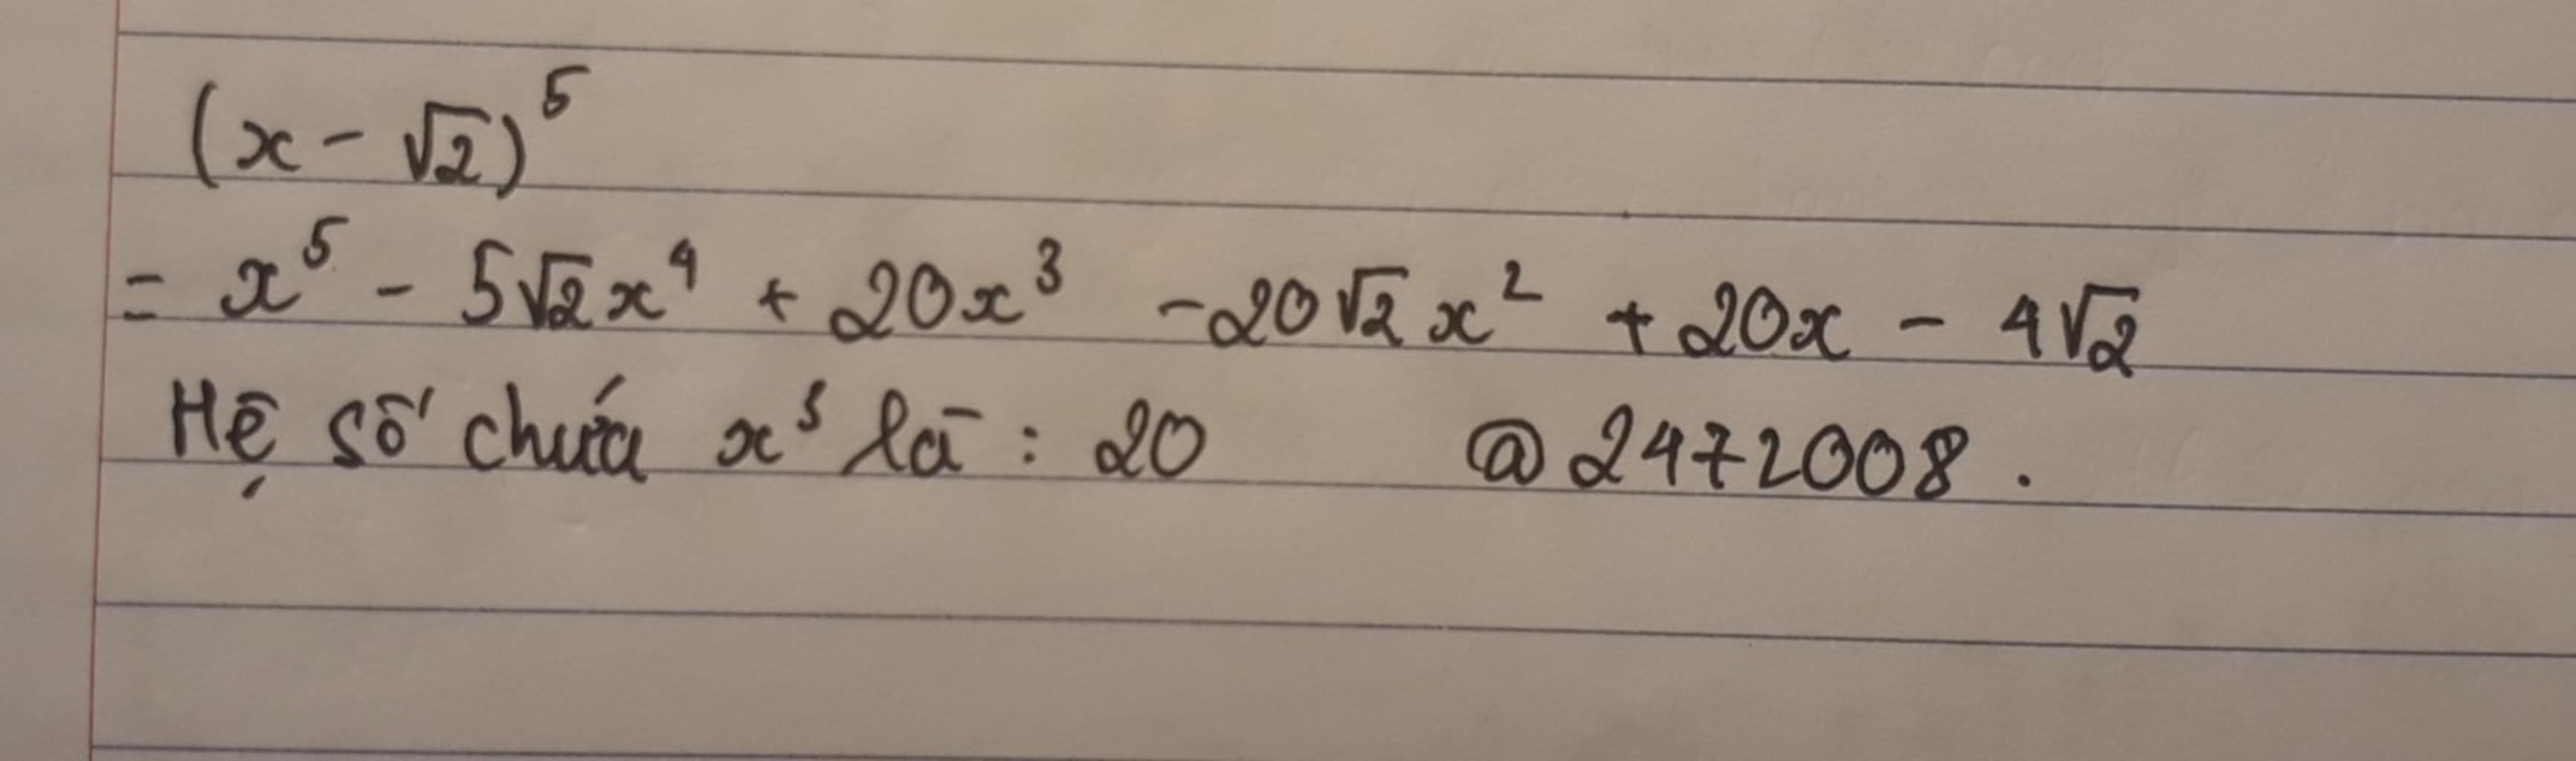 (x - √2)⁵
= x⁵ - 5√2x⁴ + 20x³ - 20√2x² + 20x - 4√2
Hệ số chứa x³ là : 20 @2472008.